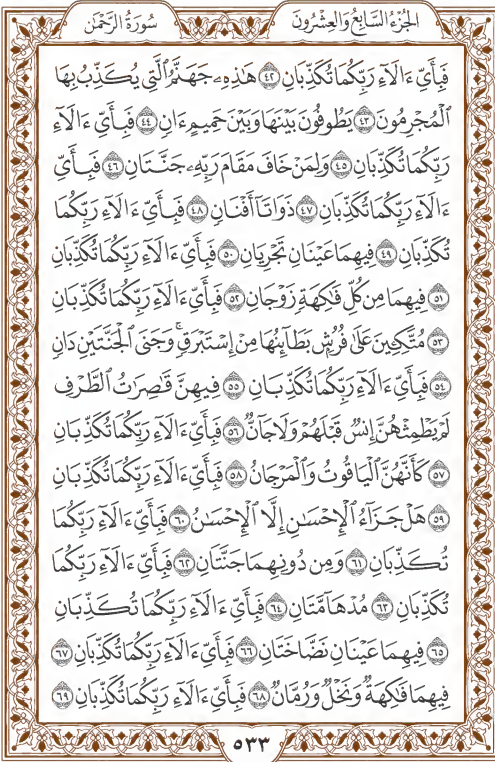 الجزء السابع والعشرون سورة الرحمن
فَبِأَيِّ ءَالَآءِ رَبِّكُمَا تُكَذِّبَانِ ٤٢ هَٰذِهِۦ جَهَنَّمُ ٱلَّتِي يُكَذِّبُ بِهَا
ٱلۡمُجۡرِمُونَ ٤٣ يَطُوفُونَ بَيۡنَهَا وَبَيۡنَ حَمِيمٍ ءَانٖ ٤٤ فَبِأَيِّ ءَالَآءِ
رَبِّكُمَا تُكَذِّبَانِ ٤٥ وَلِمَنۡ خَافَ مَقَامَ رَبِّهِۦ جَنَّتَانِ ٤٦ فَبِأَيِّ
ءَالَآءِ رَبِّكُمَا تُكَذِّبَانِ ٤٧ ذَوَاتَآ أَفۡنَانٖ ٤٨ فَبِأَيِّ ءَالَآءِ رَبِّكُمَا
تُكَذِّبَانِ ٤٩ فِيهِمَا عَيۡنَانِ تَجۡرِيَانِ ٥٠ فَبِأَيِّ ءَالَآءِ رَبِّكُمَا تُكَذِّبَانِ
٥١ فِيهِمَا مِن كُلِّ فَٰكِهَةٖ زَوۡجَانِ ٥٢ فَبِأَيِّ ءَالَآءِ رَبِّكُمَا تُكَذِّبَانِ
٥٣ مُتَّكِـِٔينَ عَلَىٰ فُرُشِۭ بَطَآئِنُهَا مِنۡ إِسۡتَبۡرَقٖۚ وَجَنَى ٱلۡجَنَّتَيۡنِ دَانٖ
٥٤ فَبِأَيِّ ءَالَآءِ رَبِّكُمَا تُكَذِّبَانِ ٥٥ فِيهِنَّ قَٰصِرَٰتُ ٱلطَّرۡفِ
لَمۡ يَطۡمِثۡهُنَّ إِنسٞ قَبۡلَهُمۡ وَلَا جَآنّٞ ٥٦ فَبِأَيِّ ءَالَآءِ رَبِّكُمَا تُكَذِّبَانِ
٥٧ كَأَنَّهُنَّ ٱلۡيَاقُوتُ وَٱلۡمَرۡجَانُ ٥٨ فَبِأَيِّ ءَالَآءِ رَبِّكُمَا تُكَذِّبَانِ
٥٩ هَلۡ جَزَآءُ ٱلۡإِحۡسَٰنِ إِلَّا ٱلۡإِحۡسَٰنُ ٦٠ فَبِأَيِّ ءَالَآءِ رَبِّكُمَا
تُكَذِّبَانِ ٦١ وَمِن دُونِهِمَا جَنَّتَانِ ٦٢ فَبِأَيِّ ءَالَآءِ رَبِّكُمَا
تُكَذِّبَانِ ٦٣ مُدۡهَآمَّتَانِ ٦٤ فَبِأَيِّ ءَالَآءِ رَبِّكُمَا تُكَذِّبَانِ
٦٥ فِيهِمَا عَيۡنَانِ نَضَّاخَتَانِ ٦٦ فَبِأَيِّ ءَالَآءِ رَبِّكُمَا تُكَذِّبَانِ ٦٧
فِيهِمَا فَٰكِهَةٞ وَنَخۡلٞ وَرُمَّانٞ ٦٨ فَبِأَيِّ ءَالَآءِ رَبِّكُمَا تُكَذِّبَانِ ٦٩
٥٣٣